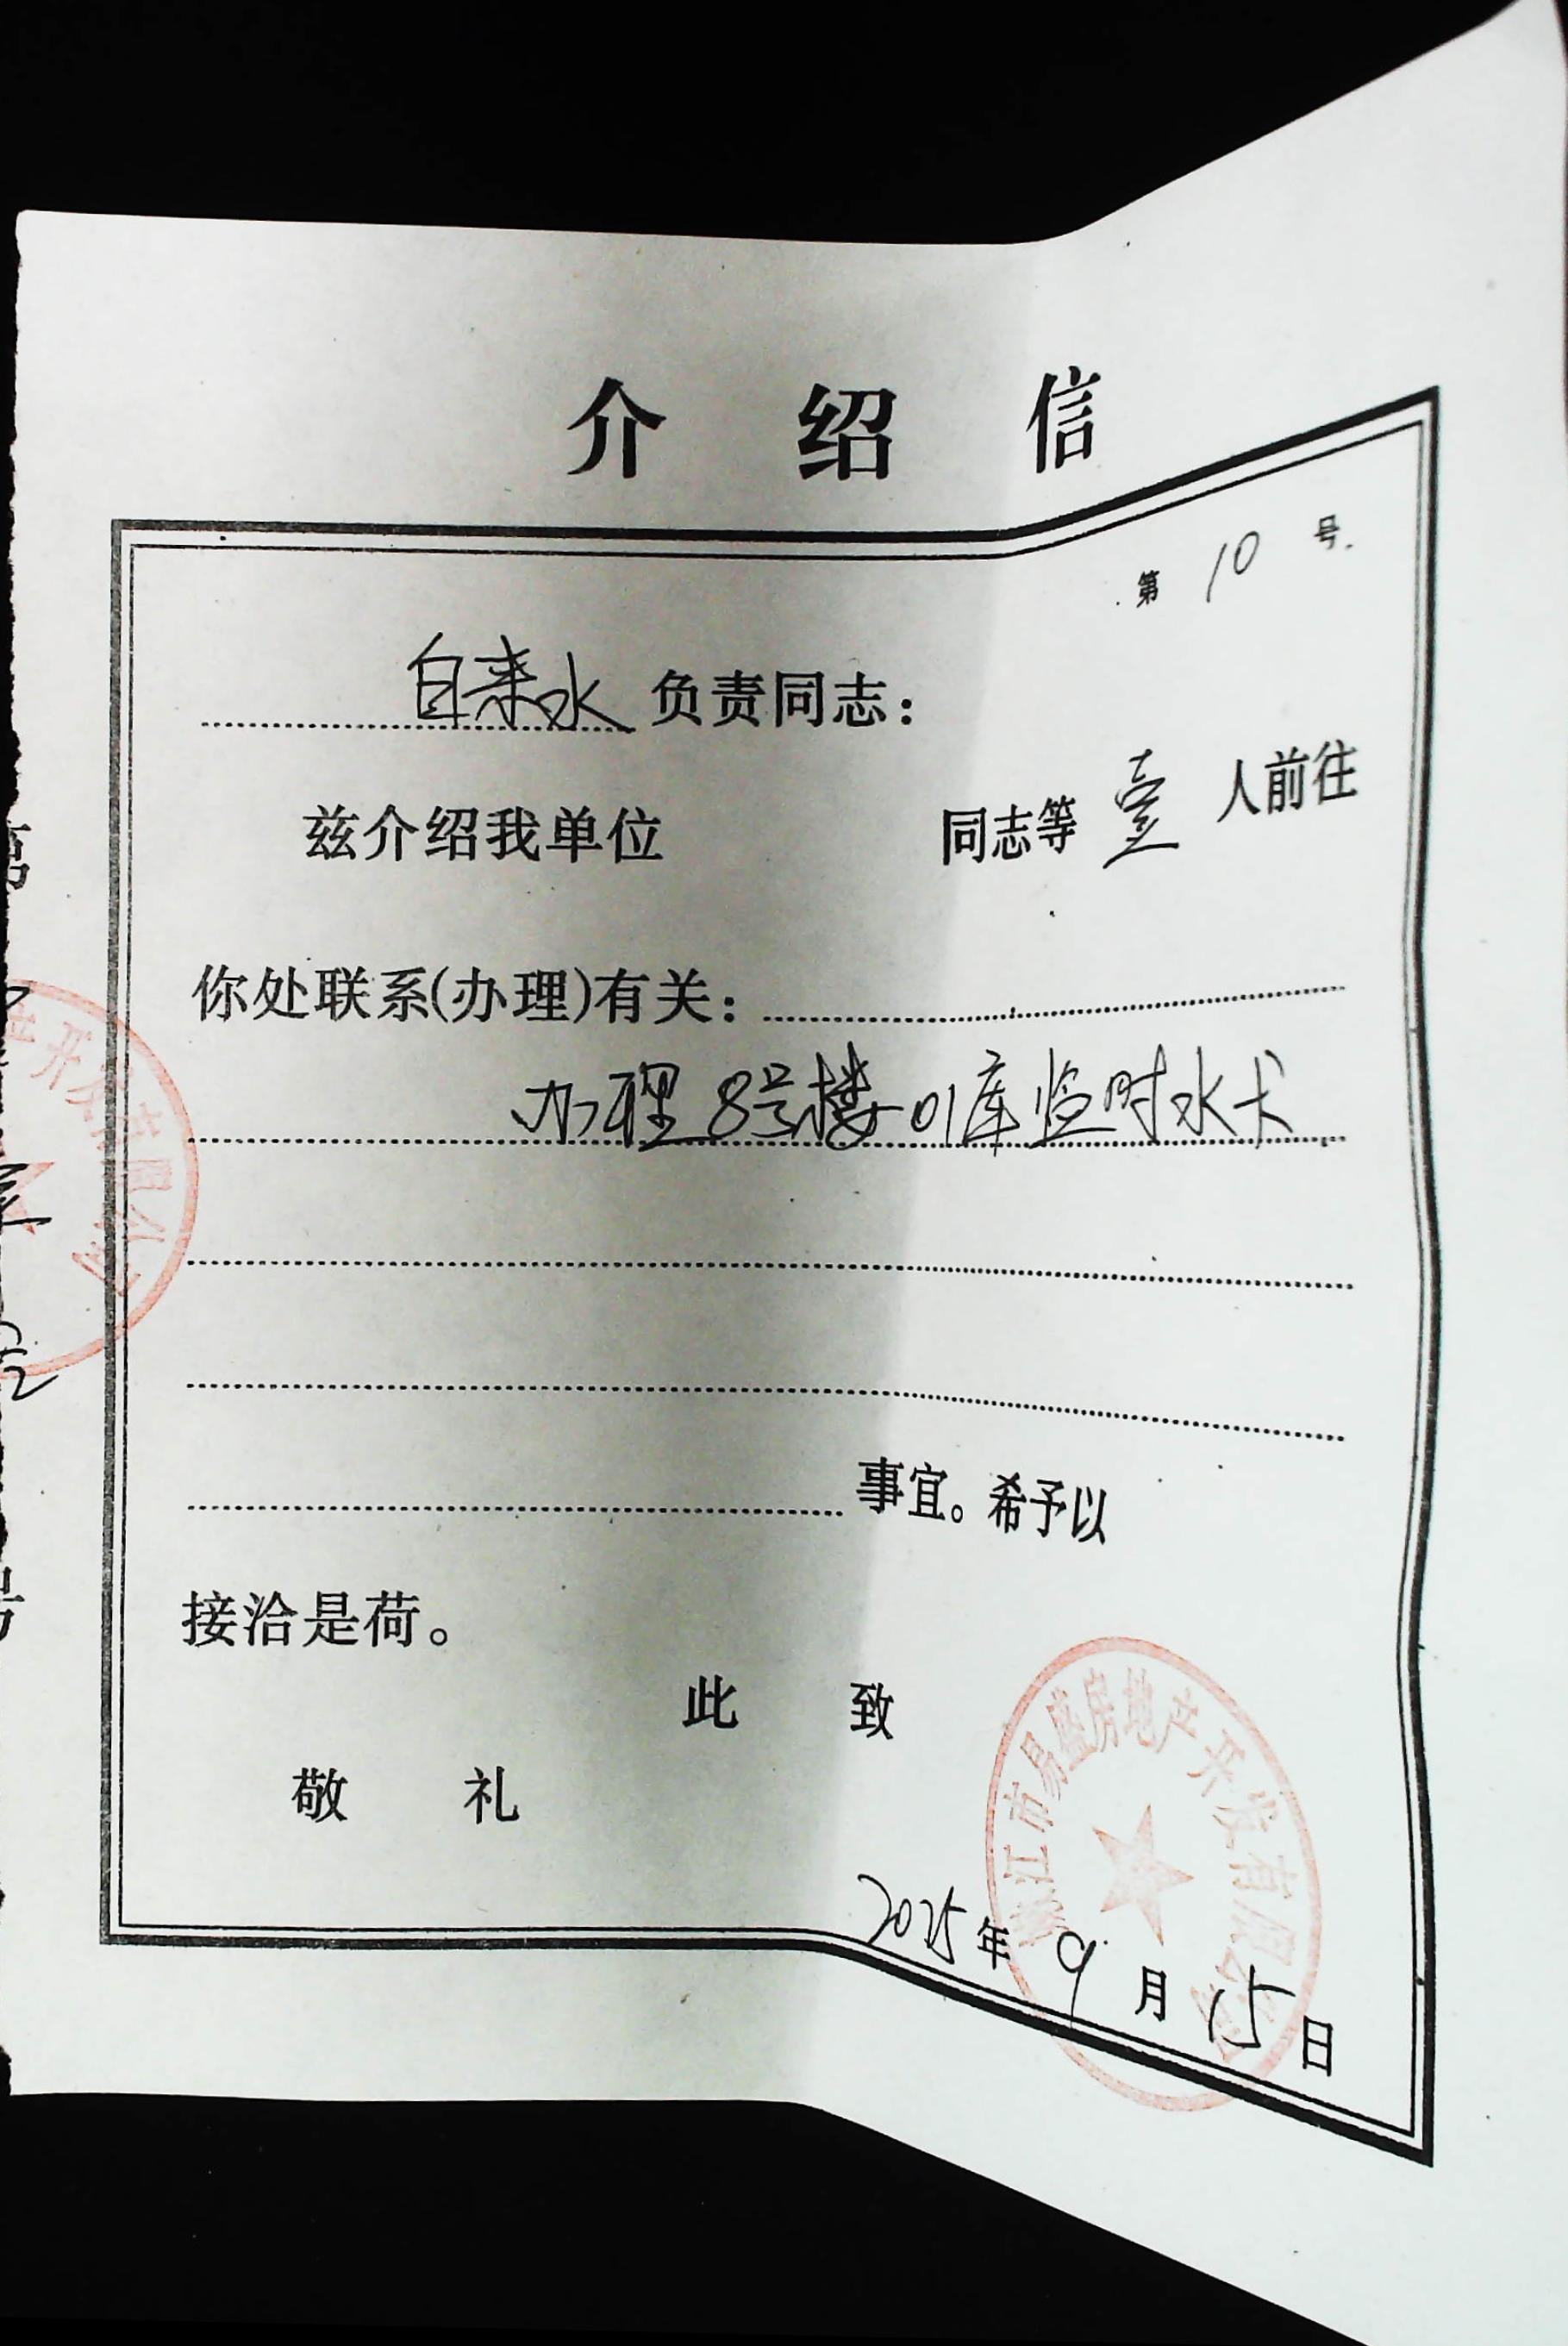 介绍信
第 10 号
自来水 负责同志：
兹介绍我单位 同志等 壹 人前往
你处联系(办理)有关：
办理8号楼01库临时水卡
事宜。希予以
接洽是荷。
此 致
敬 礼
江市易盛房地产开发有限公司
2025 年 9 月 15 日
开发有限公司